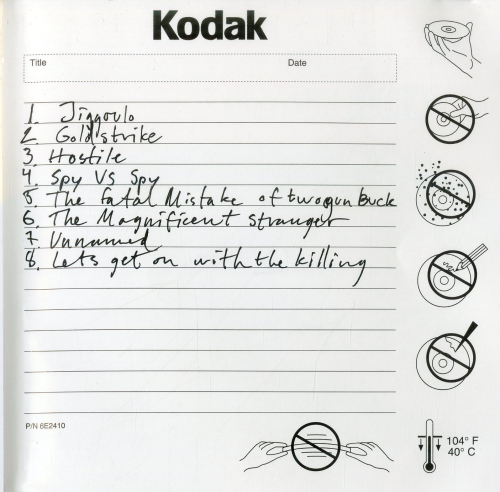 Kodak
Title Date
1. Jiggoulo
2. Goldstrike
3. Hostile
4. Spy VS Spy
5. The fatal Mistake of twogun Buck
6. The Magnificent Stranger
7. Unnamed
8. Lets get on with the killing
P/N 6E2410
104° F
40° C